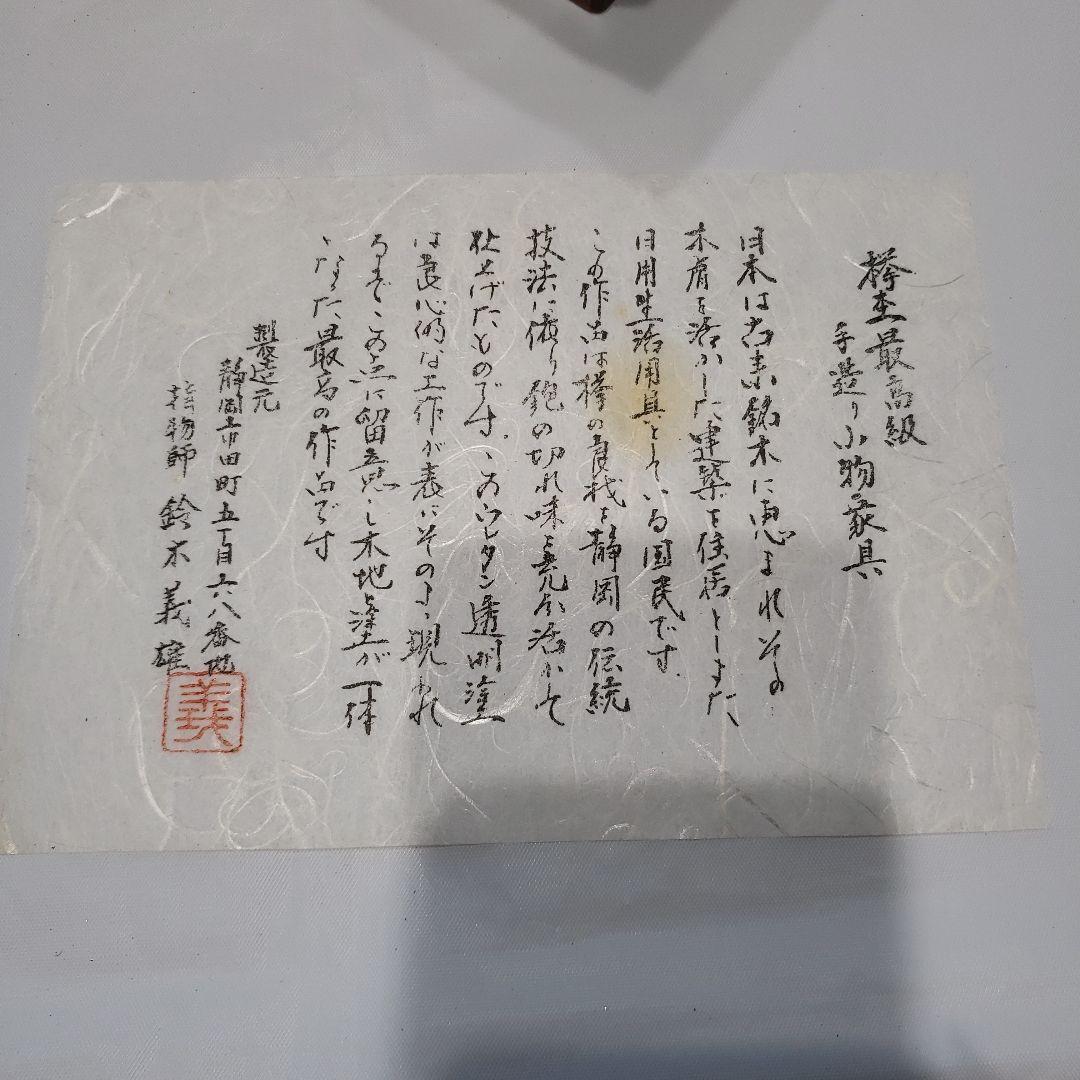 欅杢最高級
手造り小物家具
日本は古来銘木に恵まれその
木膚を活かした建築を住居としまた
日用生活用具としている国民です.
この作品は欅の良材を静岡の伝統
技法に依り鉋の切れ味を充分活かして
仕上げたものです. このウレタン透明塗
は良心的な工作が表にそのまゝ現われ
るまでこの点に留意し木地と塗が一体
となった最高の作品です
製造元
静岡市田町五丁目六八番地
指物師 鈴木義雄